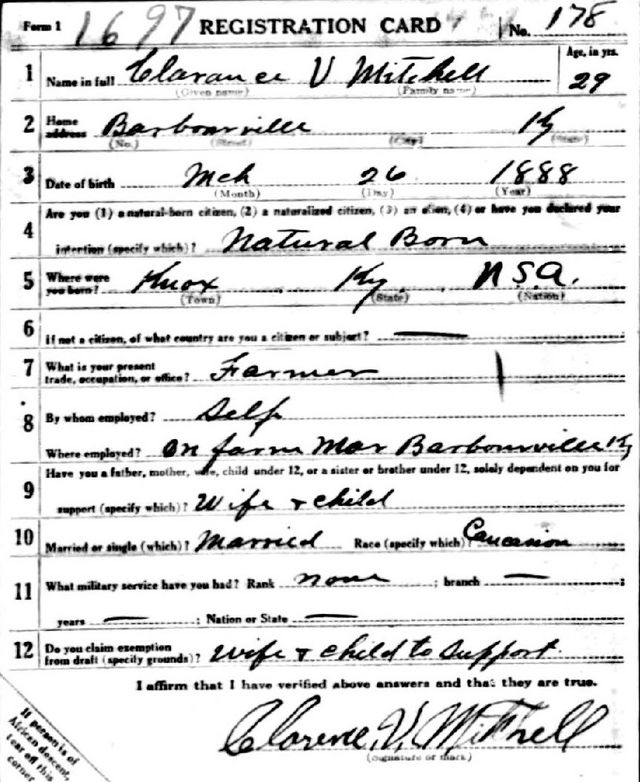 Form 1 1697 REGISTRATION CARD No. 178
1 Name in full Clarance V Mitchell Age, in yrs. 29
(Given name) (Family name)
2 Home address Barbourville Ky
(No.) (Street) (City) (State)
3 Date of birth Mch 26 1888
(Month) (Day) (Year)
Are you (1) a natural-born citizen, (2) a naturalized citizen, (3) an alien, (4) or have you declared your
4 intention (specify which)? Natural Born
5 Where were you born? Knox Ky. U.S.A.
(Town) (State) (Nation)
6 If not a citizen, of what country are you a citizen or subject? —
7 What is your present trade, occupation, or office? Farmer
8 By whom employed? Self
Where employed? On farm Barbourville Ky
Have you a father, mother, wife, child under 12, or a sister or brother under 12, solely dependent on you for
9 support (specify which)? Wife + child
10 Married or single (which)? Married Race (specify which)? Caucasion
11 What military service have you had? Rank none ; branch — ;
years — ; Nation or State —
12 Do you claim exemption from draft (specify grounds)? Wife + child to Support
I affirm that I have verified above answers and that they are true.
Clarence V. Mitchell
(Signature or mark)
If person is of
African descent,
tear off this
corner